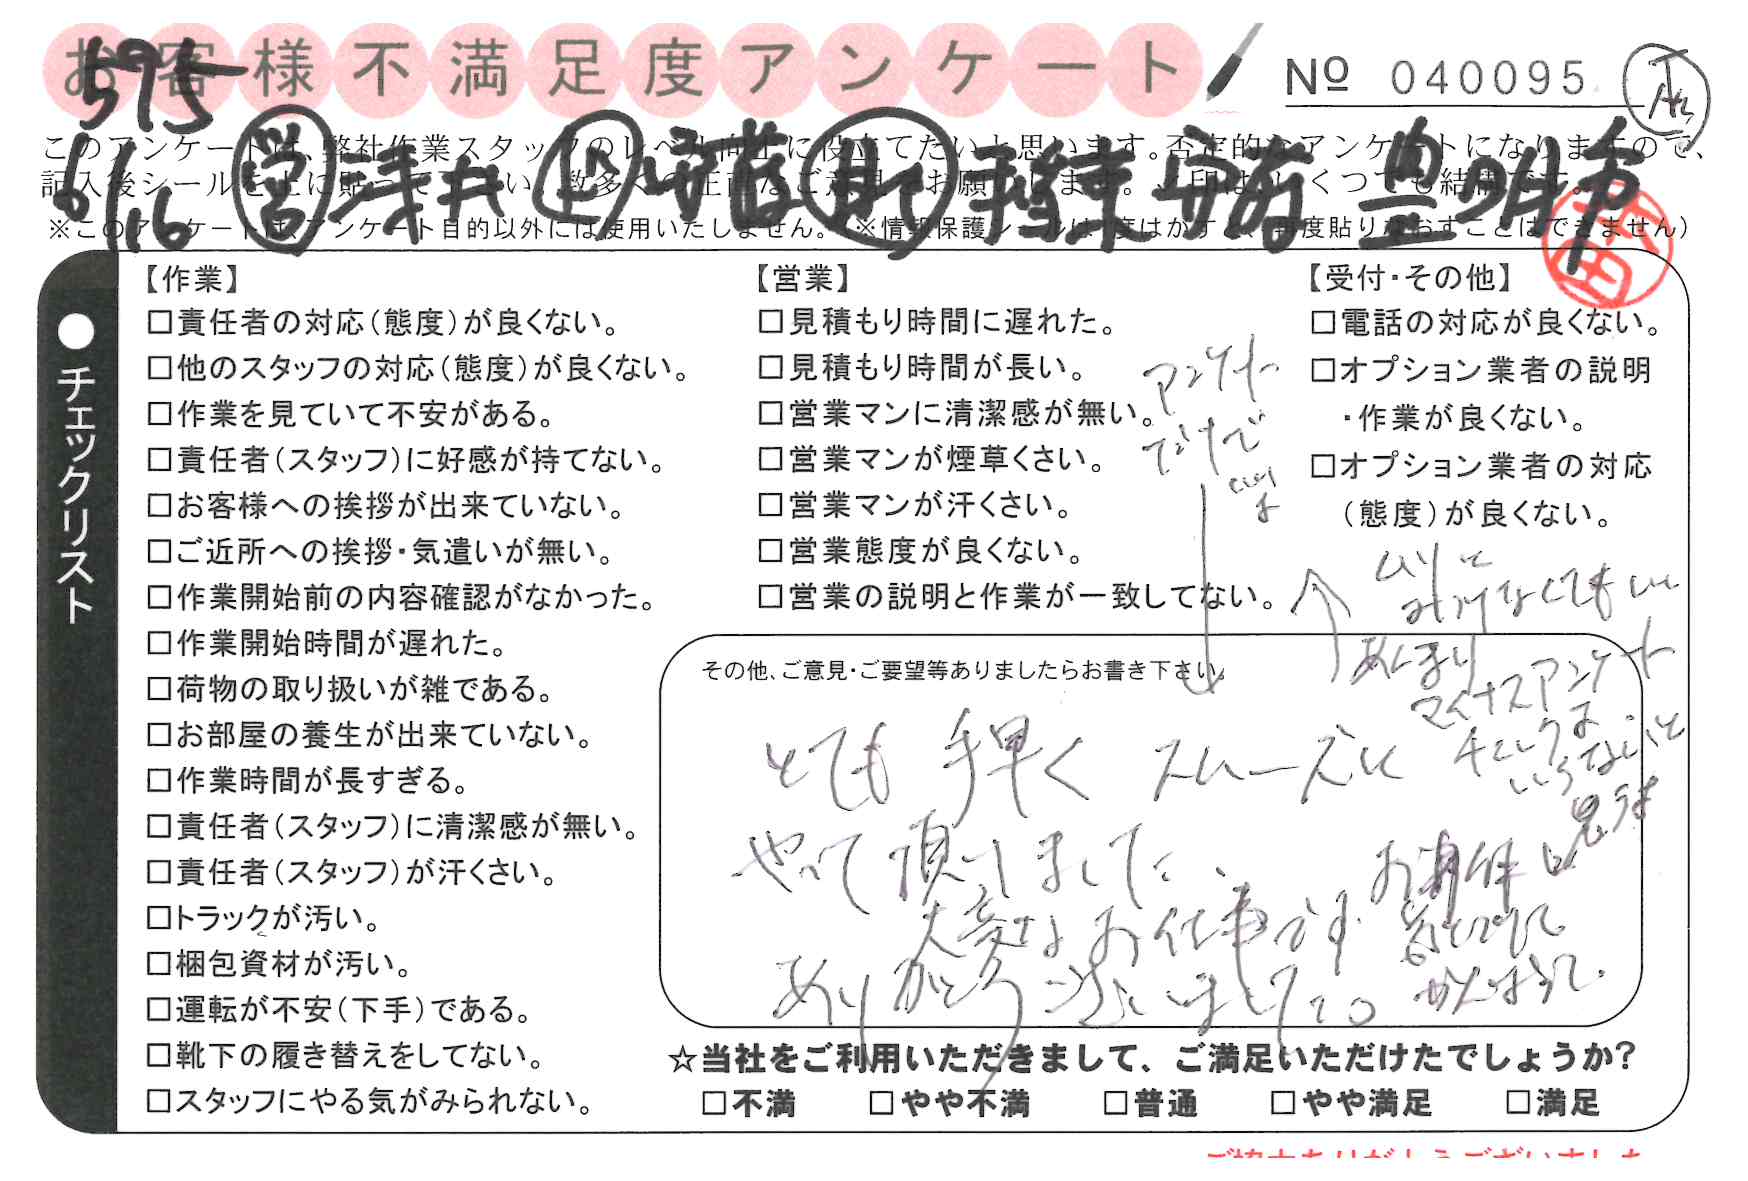 お客様不満足度アンケート
Nº 040095
575
6/16 営 浅井 作 斉藤 豊明市
このアンケートは、弊社作業スタッフのレベル向上に役立てたいと思います。否定的なアンケートになりますので、
記入後シールを上に貼って下さい。数多くの正直なご意見をお願いします。✓印はいくつでも結構です。
※このアンケートは、アンケート目的以外には使用いたしません。（※情報保護シールは1度はがすと、再度貼りなおすことはできません）
●チェックリスト
【作業】
□責任者の対応（態度）が良くない。
□他のスタッフの対応（態度）が良くない。
□作業を見ていて不安がある。
□責任者（スタッフ）に好感が持てない。
□お客様への挨拶が出来ていない。
□ご近所への挨拶・気遣いが無い。
□作業開始前の内容確認がなかった。
□作業開始時間が遅れた。
□荷物の取り扱いが雑である。
□お部屋の養生が出来ていない。
□作業時間が長すぎる。
□責任者（スタッフ）に清潔感が無い。
□責任者（スタッフ）が汗くさい。
□トラックが汚い。
□梱包資材が汚い。
□運転が不安（下手）である。
□靴下の履き替えをしてない。
□スタッフにやる気がみられない。
【営業】
□見積もり時間に遅れた。
□見積もり時間が長い。
□営業マンに清潔感が無い。
□営業マンが煙草くさい。
□営業マンが汗くさい。
□営業態度が良くない。
□営業の説明と作業が一致してない。
【受付・その他】
□電話の対応が良くない。
□オプション業者の説明
・作業が良くない。
□オプション業者の対応
（態度）が良くない。
アンケート
だけで
いいよ
ムリと
みけなくてもいい
あくまり
マイナスアンケート
チェックは
いらないと
思うよ
その他、ご意見・ご要望等ありましたらお書き下さい。
とても 手早く スムーズに
やって頂きました、
大変なお仕事ですが
お身体に
気をつけて
がんばって。
ありがとうございました。
☆当社をご利用いただきまして、ご満足いただけたでしょうか？
□不満 □やや不満 □普通 □やや満足 □満足
ご協力ありがとうございました